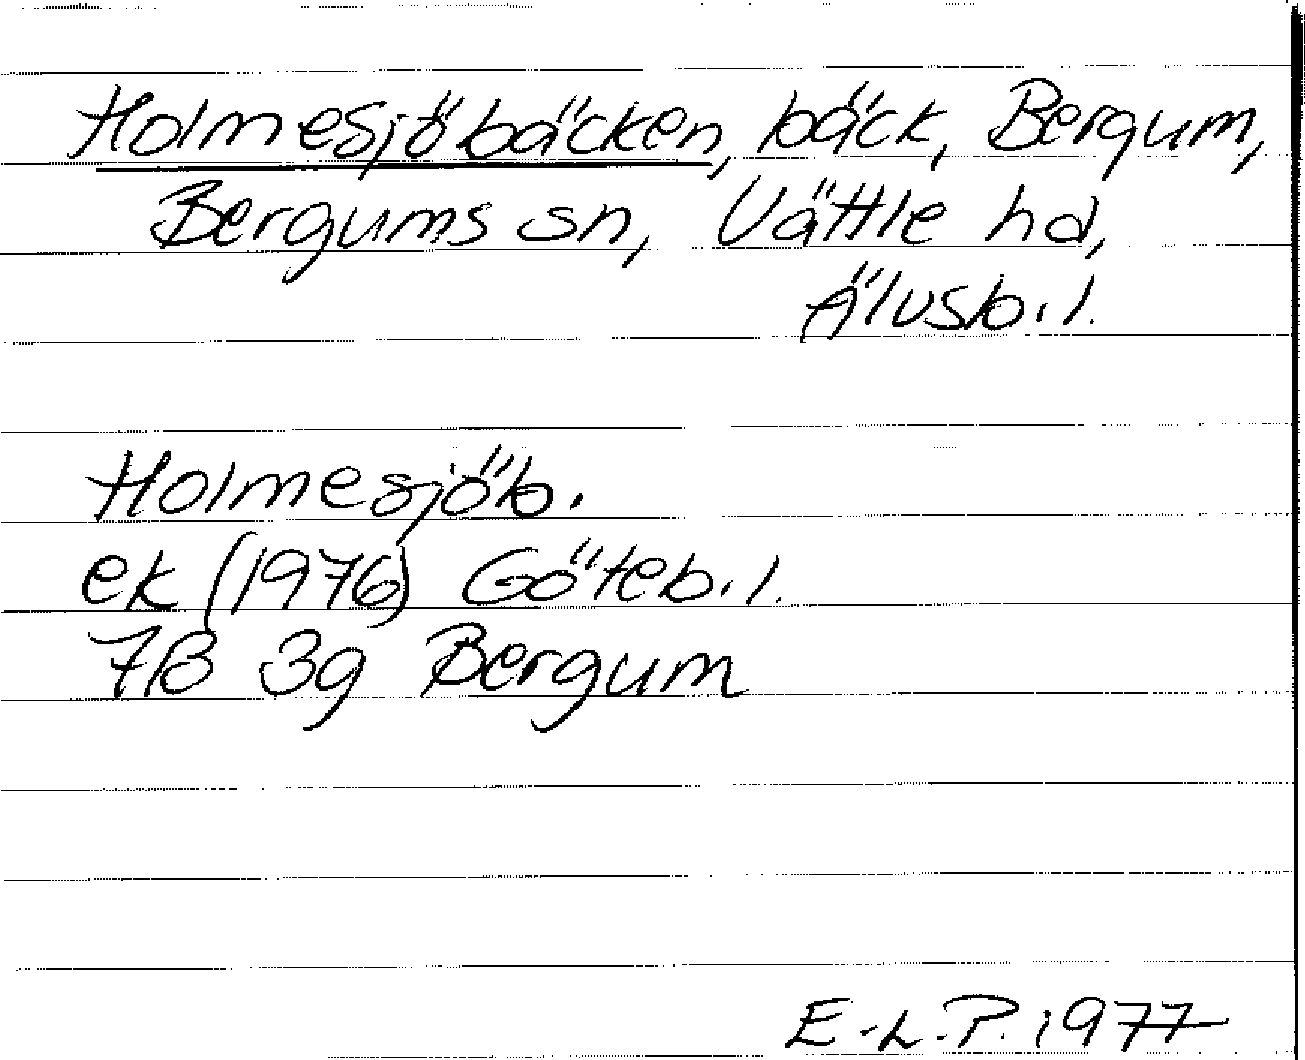 Holmesjöbäcken, bäck, Bergum,
Bergums sn, Vättle hd,
Älvsb. l.
Holmesjöb.
ek (1976) Göteb. l.
7B 3g Bergum
E-L.P. 1977